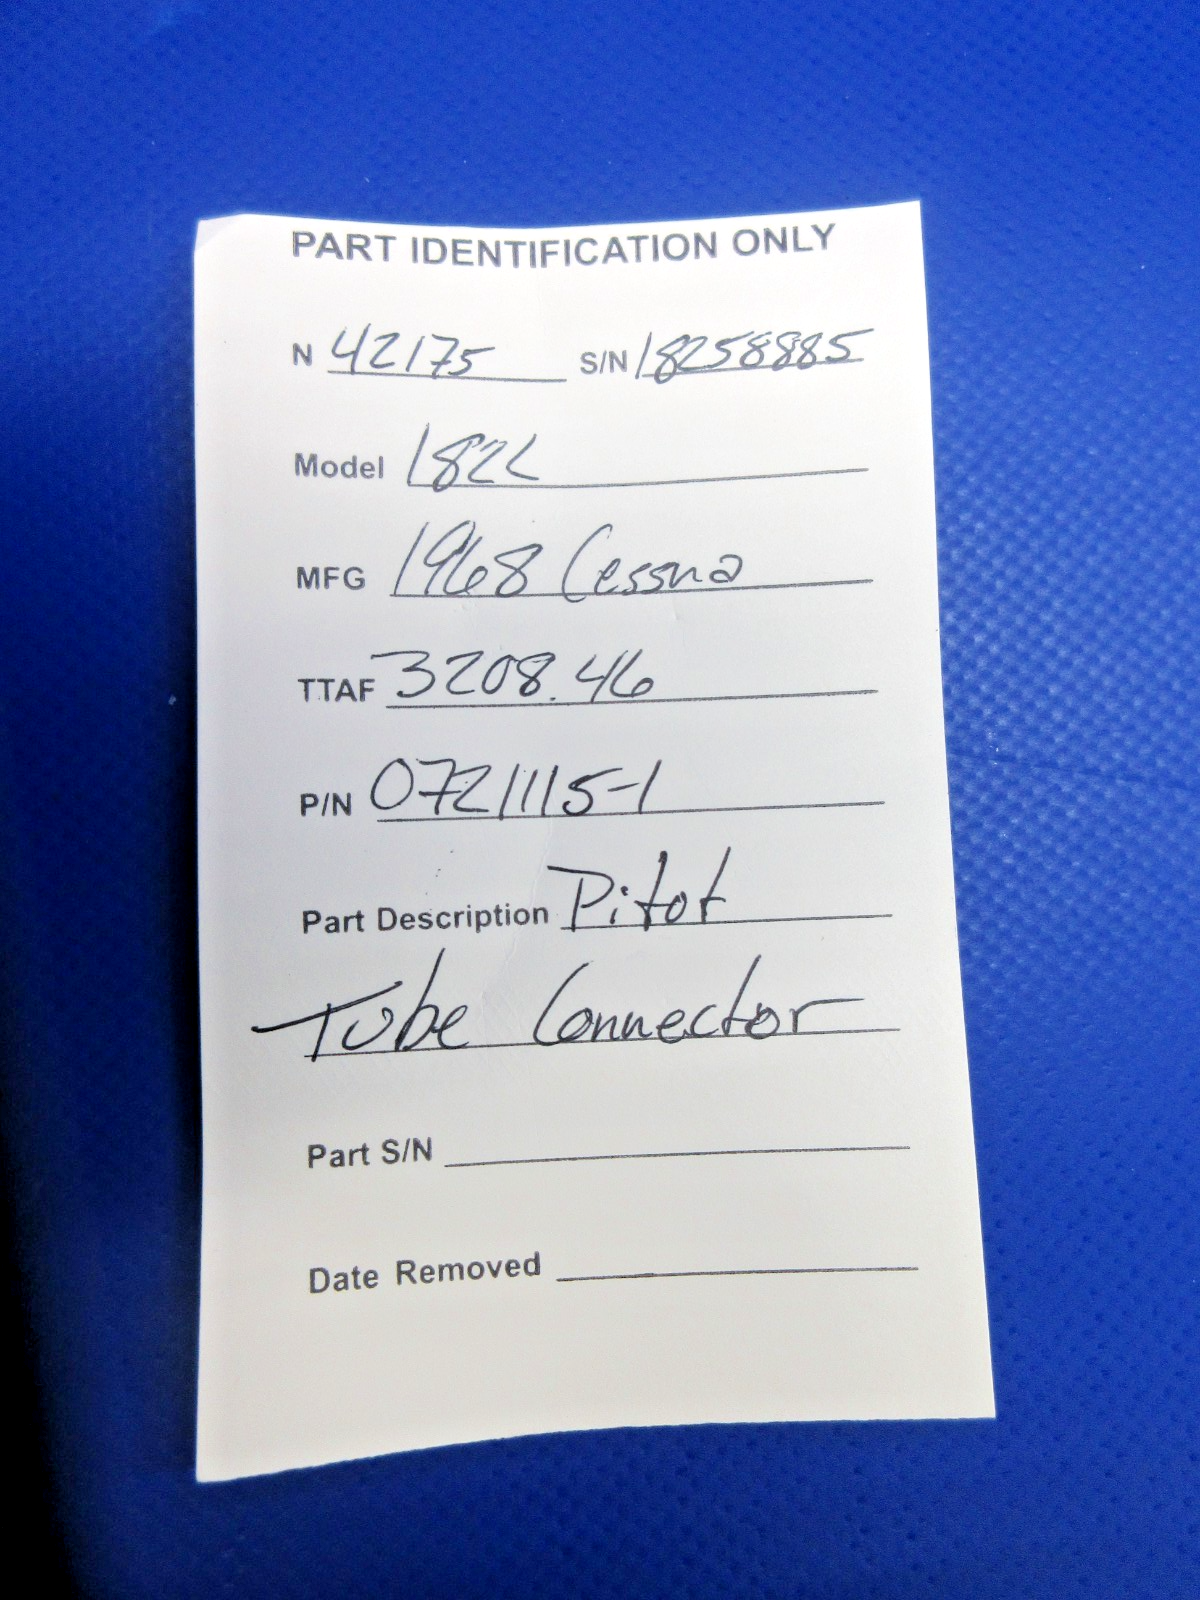 PART IDENTIFICATION ONLY
N 42175 S/N 18258885
Model 182L
MFG 1968 Cessna
TTAF 3208.46
P/N 0721115-1
Part Description Pitot
Tube Connector
Part S/N
Date Removed